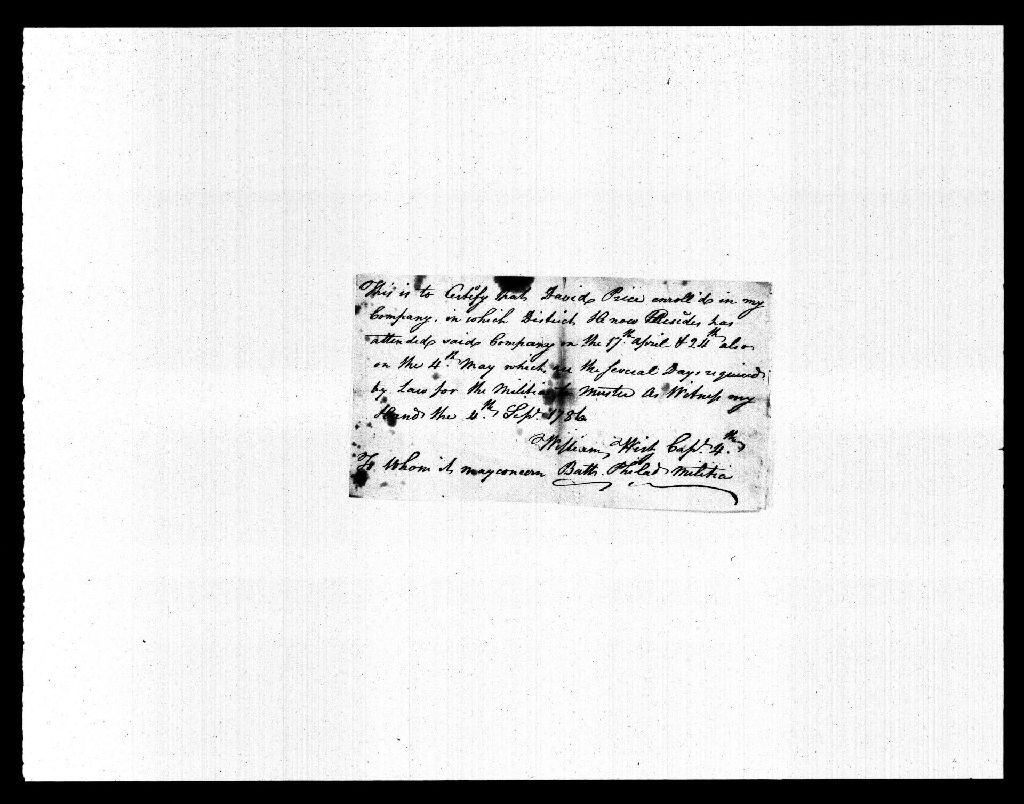 This is to Certify that David Price enroll'd in my
Company, in which District He now Resides has
attended said Company on the 17th April & 24th also
on the 4th May which are the several Days required
by Law for the Militia to Muster As Witness my
Hand the 4th Sept. 1786
William Capt. 4th
To Whom it may concern Battn. Philad Militia